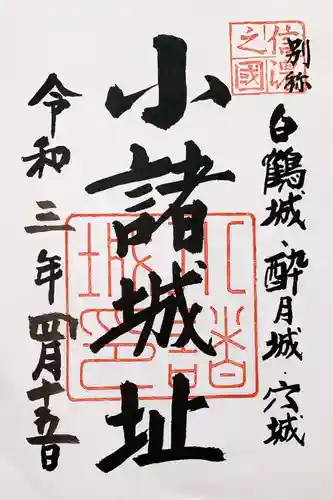 信濃之國
別称 白鶴城・酔月城・穴城
小諸城址
小諸城印
令和三年四月十五日